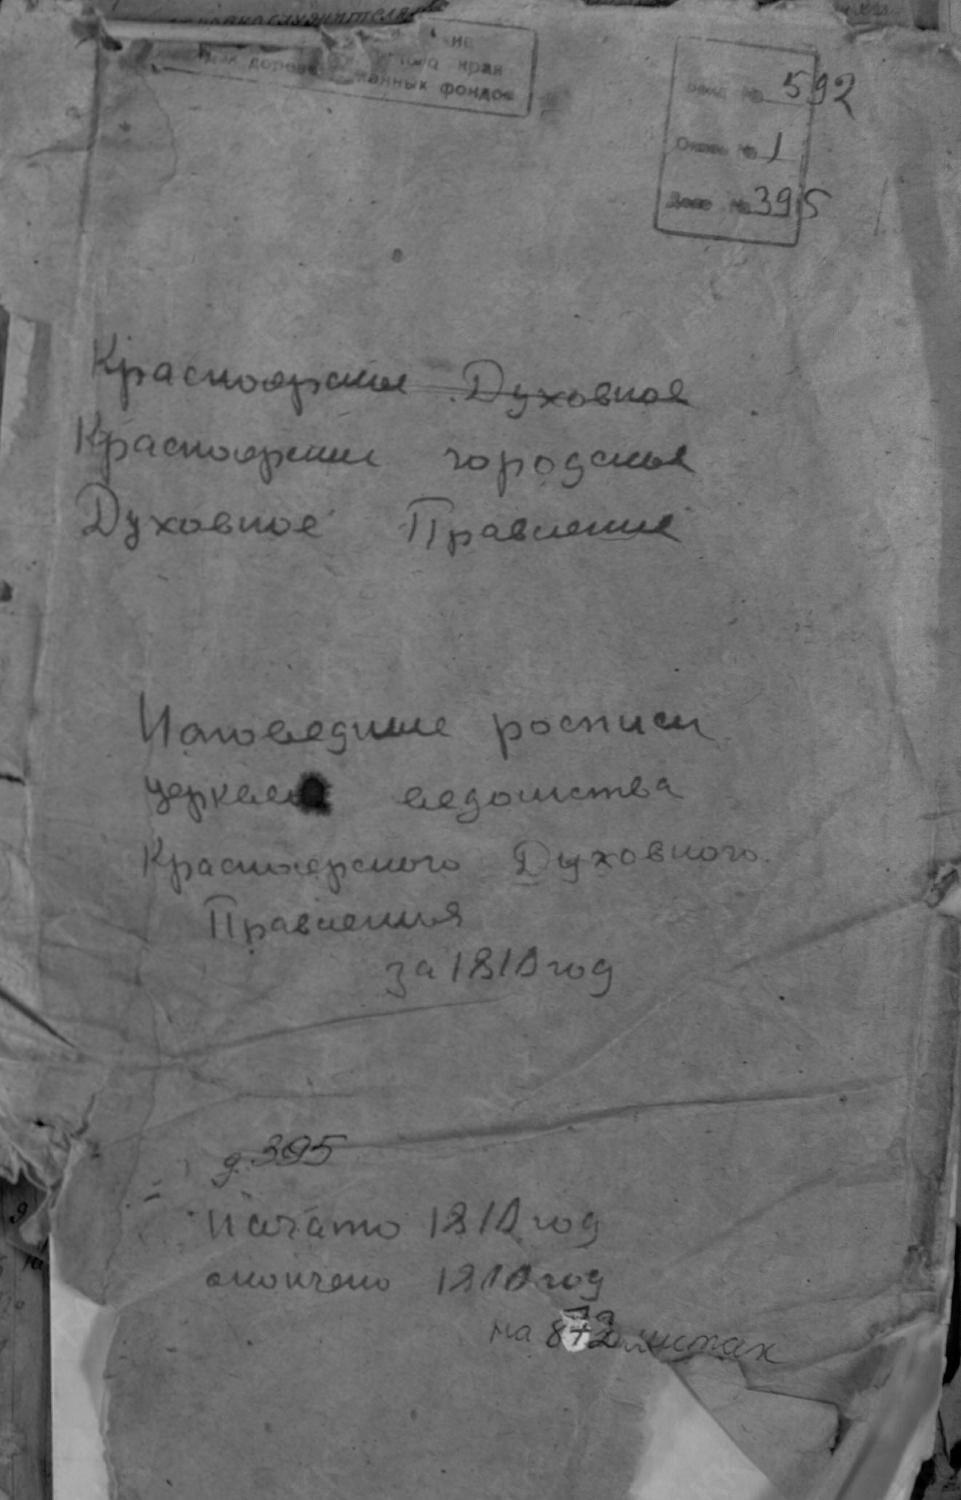 края
дорево ионных фондов
Фонд № 592
Опись № 1
Дело № 395
Красноярское Духовное
Красноярское городское
Духовное Правление
Исповедные росписи
церквей ведомства
Красноярского Духовного
Правления
за 1810 год
д. 395
Начато 1810 год
окончено 1810 год
листах